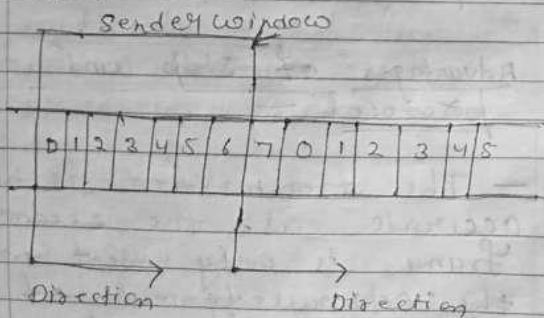 Sender window
0 1 2 3 4 5 6 7 0 1 2 3 4 5
Direction Direction